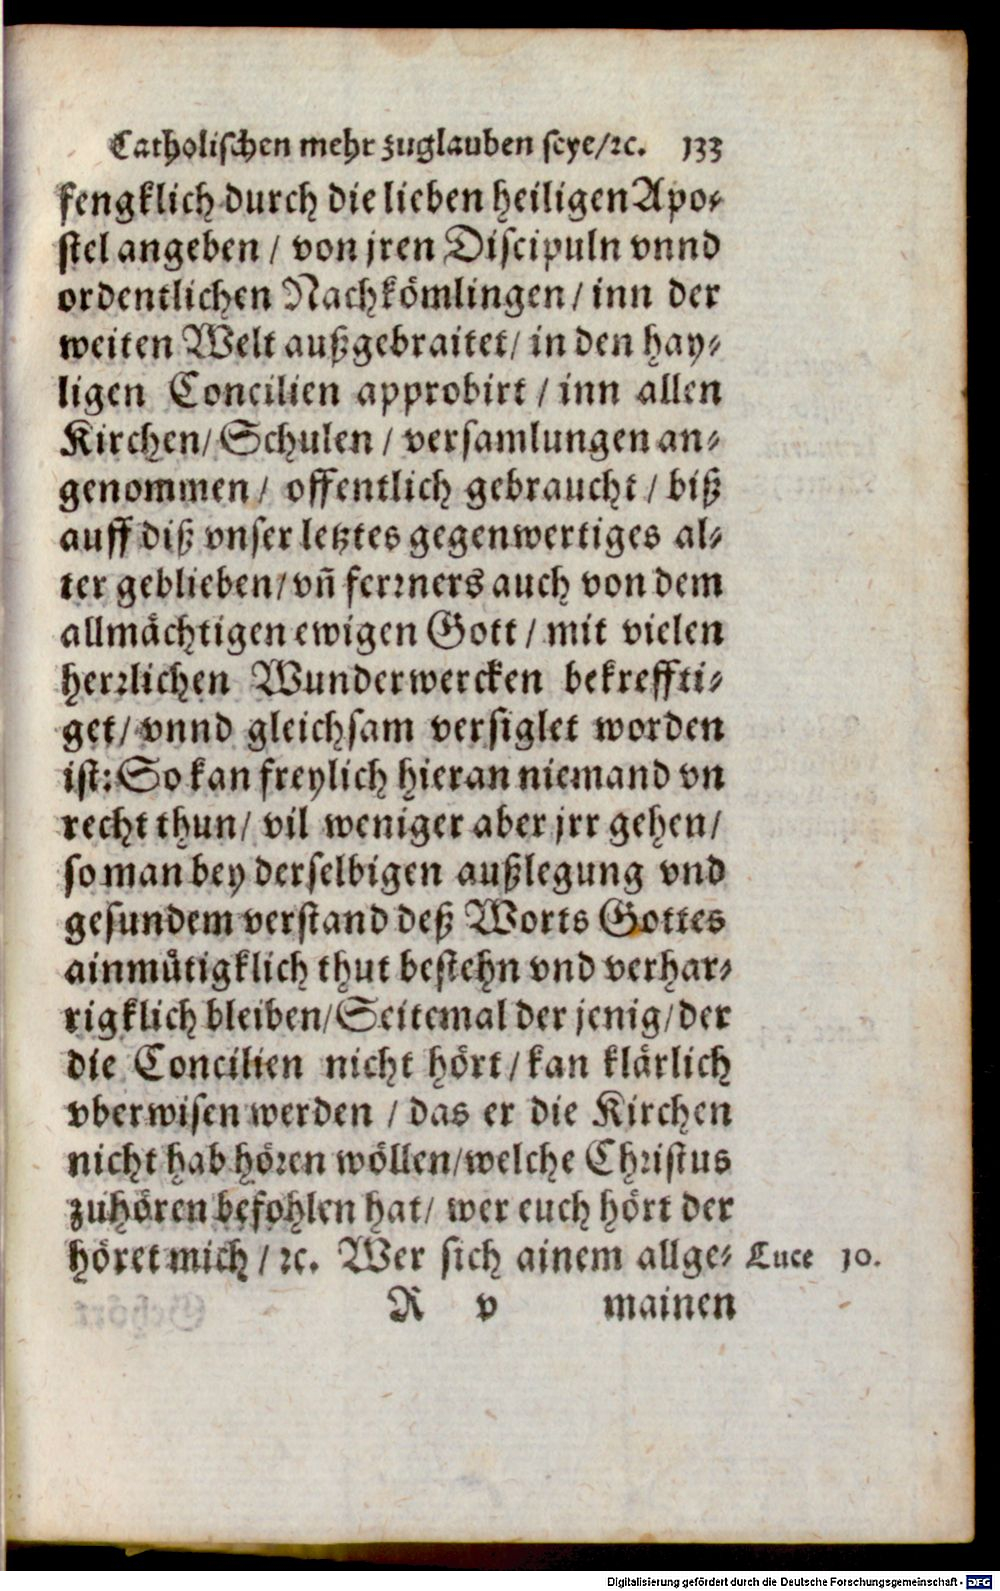 Catholischen mehr zuglauben seye/ꝛc. 133
fengklich durch die lieben heiligen Apo-
stel angeben / von jren Discipuln vnnd
ordentlichen Nachkömlingen / inn der
weiten Welt außgebraitet / in den hay-
ligen Concilien approbirt / inn allen
Kirchen / Schulen / versamlungen an-
genommen / offentlich gebraucht / biß
auff diß vnser letztes gegenwertiges al-
ter geblieben / vñ ferrners auch von dem
allmächtigen ewigen Gott / mit vielen
herrlichen Wunderwercken bekreffti-
get / vnnd gleichsam versiglet worden
ist: So kan freylich hieran niemand vn
recht thun / vil weniger aber jrr gehen /
so man bey derselbigen außlegung vnd
gesundem verstand deß Worts Gottes
ainmütigklich thut bestehn vnd verhar-
rigklich bleiben / Seitemal der jenig / der
die Concilien nicht hört / kan klärlich
vberwisen werden / das er die Kirchen
nicht hab hören wöllen / welche Christus
zuhören befohlen hat / wer euch hört der
höret mich / ꝛc. Wer sich ainem allge- Luce 10.
R v mainen
Digitalisierung gefördert durch die Deutsche Forschungsgemeinschaft - DFG